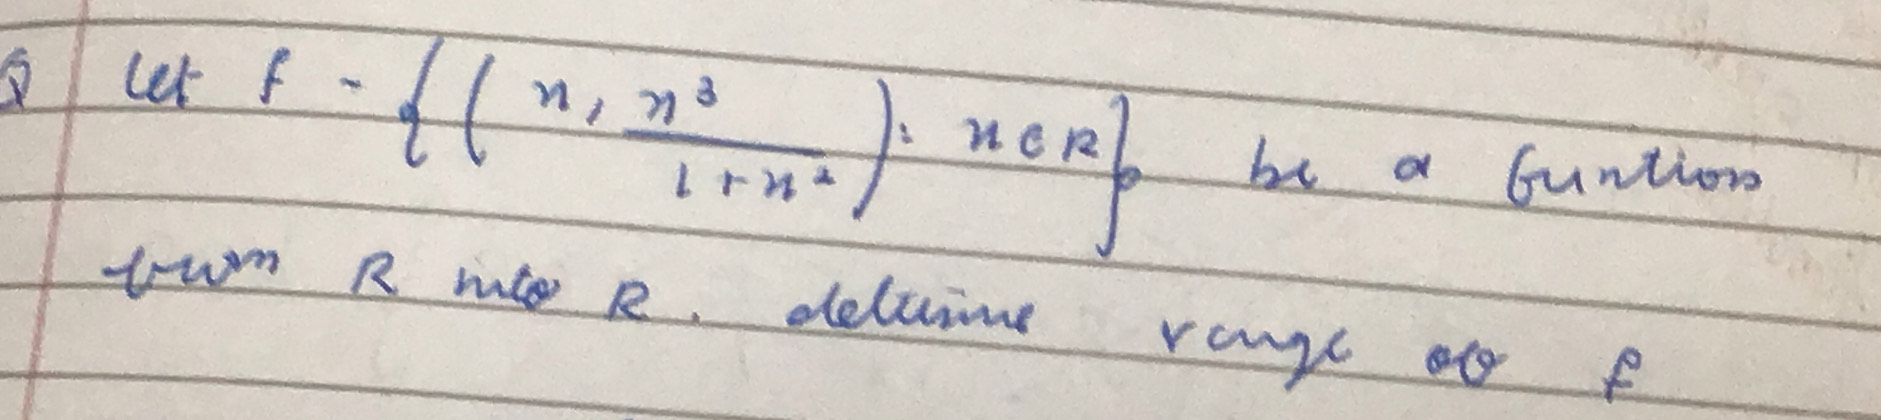 Q Let f = {(x, x³/(1+x²)): x ∈ R} be a funtion
from R into R. determine range of f